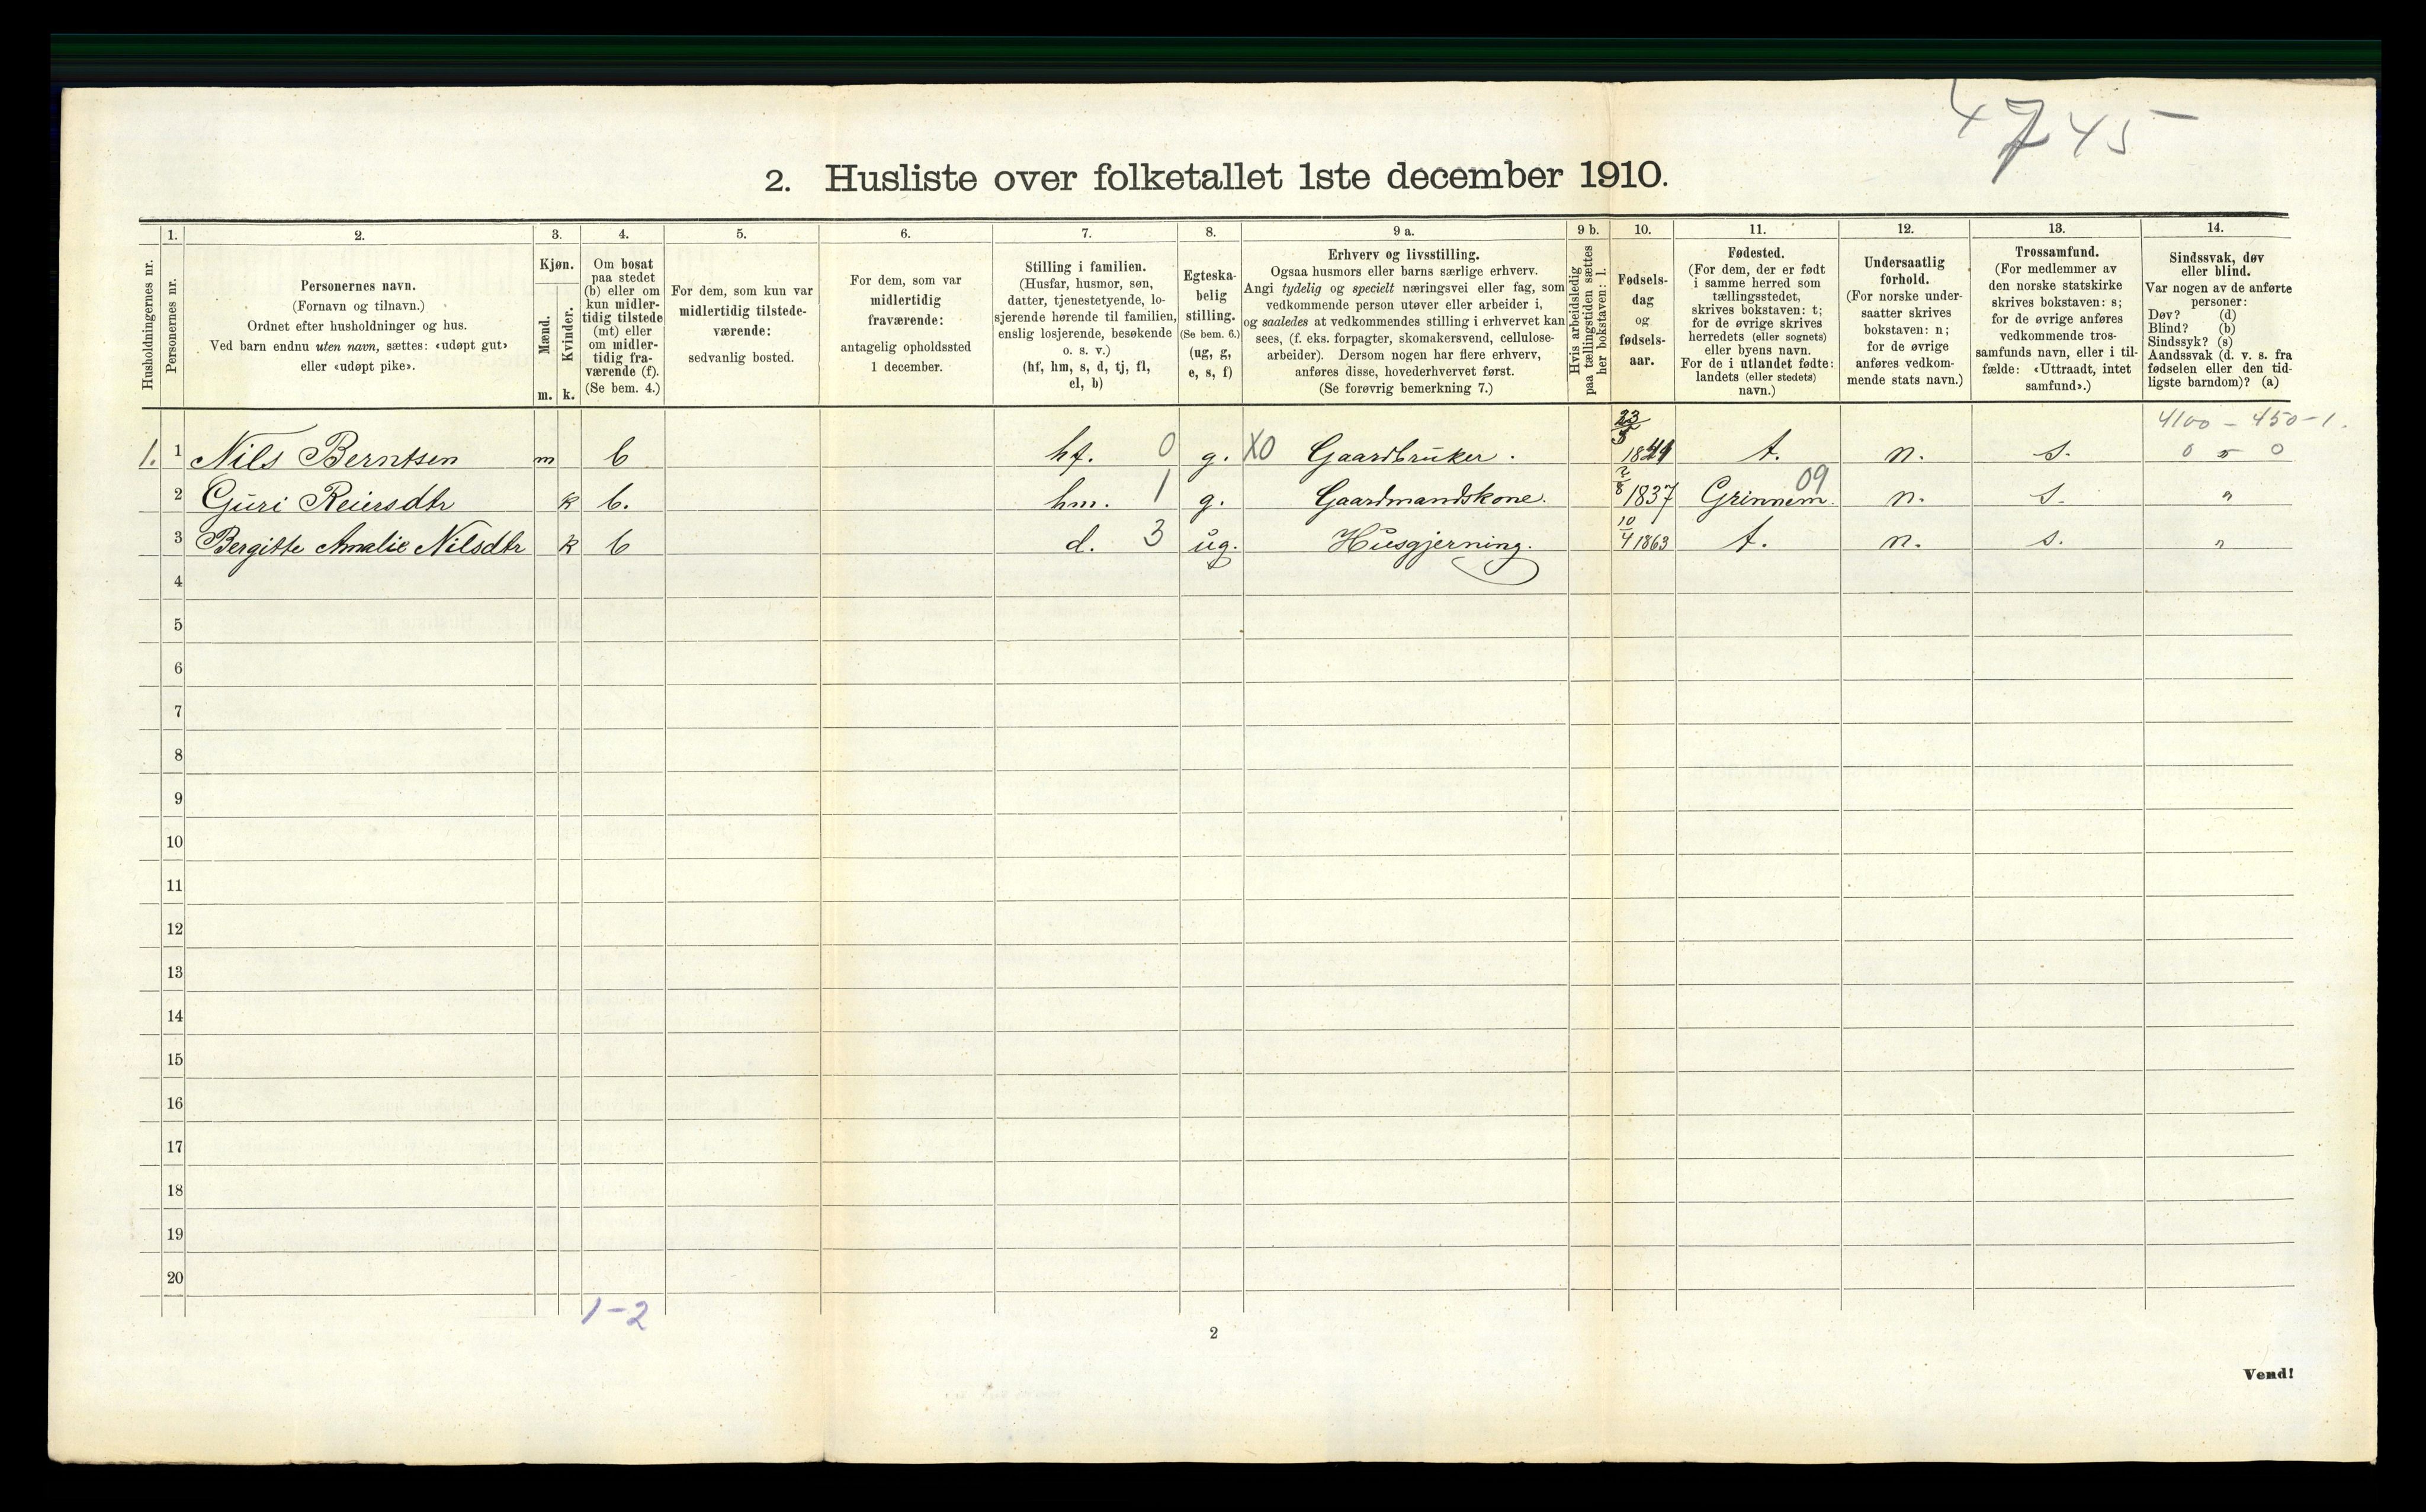 4745
2. Husliste over folketallet 1ste december 1910.
1. 2. 3. 4. 5. 6. 7. 8. 9 a. 9 b. 10. 11. 12. 13. 14.
Husholdningernes nr.
Personernes nr.
Personernes navn.
(Fornavn og tilnavn.)
Ordnet efter husholdninger og hus.
Ved barn endnu uten navn, sættes: «udøpt gut»
eller «udøpt pike».
Kjøn.
Mænd.
Kvinder.
m. k.
Om bosat
paa stedet
(b) eller om
kun midler-
tidig tilstede
(mt) eller
om midler-
tidig fra-
værende (f).
(Se bem. 4.)
For dem, som kun var
midlertidig tilstede-
værende:
sedvanlig bosted.
For dem, som var
midlertidig
fraværende:
antagelig opholdssted
1 december.
Stilling i familien.
(Husfar, husmor, søn,
datter, tjenestetyende, lo-
sjerende hørende til familien,
enslig losjerende, besøkende
o. s. v.)
(hf, hm, s, d, tj, fl,
el, b)
Egteska-
belig
stilling.
(Se bem. 6.)
(ug, g,
e, s, f)
Erhverv og livsstilling.
Ogsaa husmors eller barns særlige erhverv.
Angi tydelig og specielt næringsvei eller fag, som
vedkommende person utøver eller arbeider i,
og saaledes at vedkommendes stilling i erhvervet kan
sees, (f. eks. forpagter, skomakersvend, cellulose-
arbeider). Dersom nogen har flere erhverv,
anføres disse, hovederhvervet først.
(Se forøvrig bemerkning 7.)
Hvis arbeidsledig
paa tællingstiden sættes
her bokstaven: l.
Fødsels-
dag
og
fødsels-
aar.
Fødested.
(For dem, der er født
i samme herred som
tællingsstedet,
skrives bokstaven: t;
for de øvrige skrives
herredets (eller sognets)
eller byens navn.
For de i utlandet fødte:
landets (eller stedets)
navn.)
Undersaatlig
forhold.
(For norske under-
saatter skrives
bokstaven: n;
for de øvrige
anføres vedkom-
mende stats navn.)
Trossamfund.
(For medlemmer av
den norske statskirke
skrives bokstaven: s;
for de øvrige anføres
vedkommende tros-
samfunds navn, eller i til-
fælde: «Uttraadt, intet
samfund».)
Sindssvak, døv
eller blind.
Var nogen av de anførte
personer:
Døv? (d)
Blind? (b)
Sindssyk? (s)
Aandssvak (d. v. s. fra
fødselen eller den tid-
ligste barndom)? (a)
4100 - 450-1.
1. 1 Nils Berntsen m b hf. 0 g. X0 Gaardbruker. t. n. s. 0 0
2 Guri Reiersdtr k b. hm. 1 g. Gaardmandskone. 2/8 1837 Grinnem. 09 n. s. "
3 Bergitte Amalie Nilsdtr k b d. 3 ug. Husgjerning. 10/4 1863 t. n. s. "
4
5
6
7
8
9
10
11
12
13
14
15
16
17
18
19
20
1-2
2
Vend!